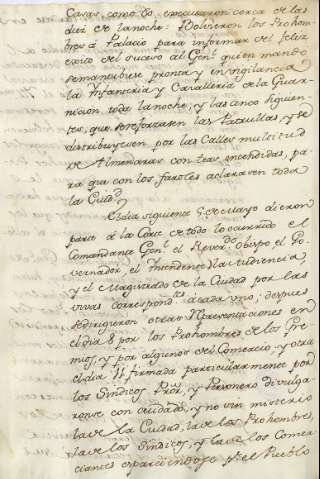 Casas, como lo executaron cerca de las
diez de la noche. Bolvieron los Prohom-
bres à Palacio para informar del feliz
exito del suceso al Gen.l quien mandó
se mantubiese pronta y en vigilancia
la Infanteria y Cavalleria de la Guar-
nicion toda la noche, y las cinco siguien-
tes, que se reforzasen las Patrullas, y se
distribuyesen por las Calles multitud
de Almenaras con teas encendidas, pa-
ra que con los faroles aclarasen toda
la Ciud.d
El dia siguiente 5. de Mayo dieron
parte à la Corte de todo lo ocurrido el
Comandante Gen.l el Reverd.o Obispo el Go-
vernador, el Intendente la Audiencia,
y el Magistrado de la Ciudad por las
vias correspond.tes à cada uno; despues
se dirigieron otras Representaciones en
el dia 8 por los Prohombres de los Gre-
mios, y por algunos del Comercio, y otra
el dia 11 firmada particularmente por
los Sindicos Pror, y Personero divulga-
ronse con cuidado, y no sin misterio
la de la Ciudad, la de los Prohombres,
la de los Sindicos, y la de los Comer-
ciantes esparciendose p.r el Pueblo